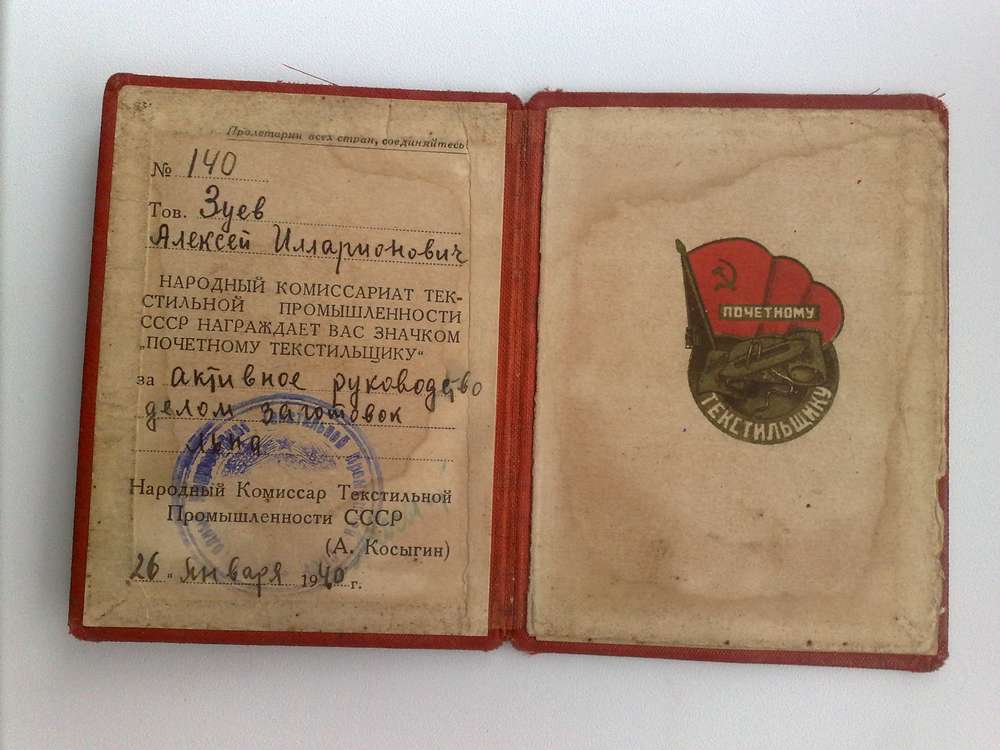 Пролетарии всех стран, соединяйтесь!
№ 140
Тов. Зуев
Алексей Илларионович
НАРОДНЫЙ КОМИССАРИАТ ТЕК-
СТИЛЬНОЙ ПРОМЫШЛЕННОСТИ
СССР НАГРАЖДАЕТ ВАС ЗНАЧКОМ
„ПОЧЕТНОМУ ТЕКСТИЛЬЩИКУ“
за активное руководство
делом заготовок
льна
Народный Комиссар Текстильной
Промышленности СССР
(А. Косыгин)
26 „ января 1940 г.
ПОЧЕТНОМУ
ТЕКСТИЛЬЩИКУ